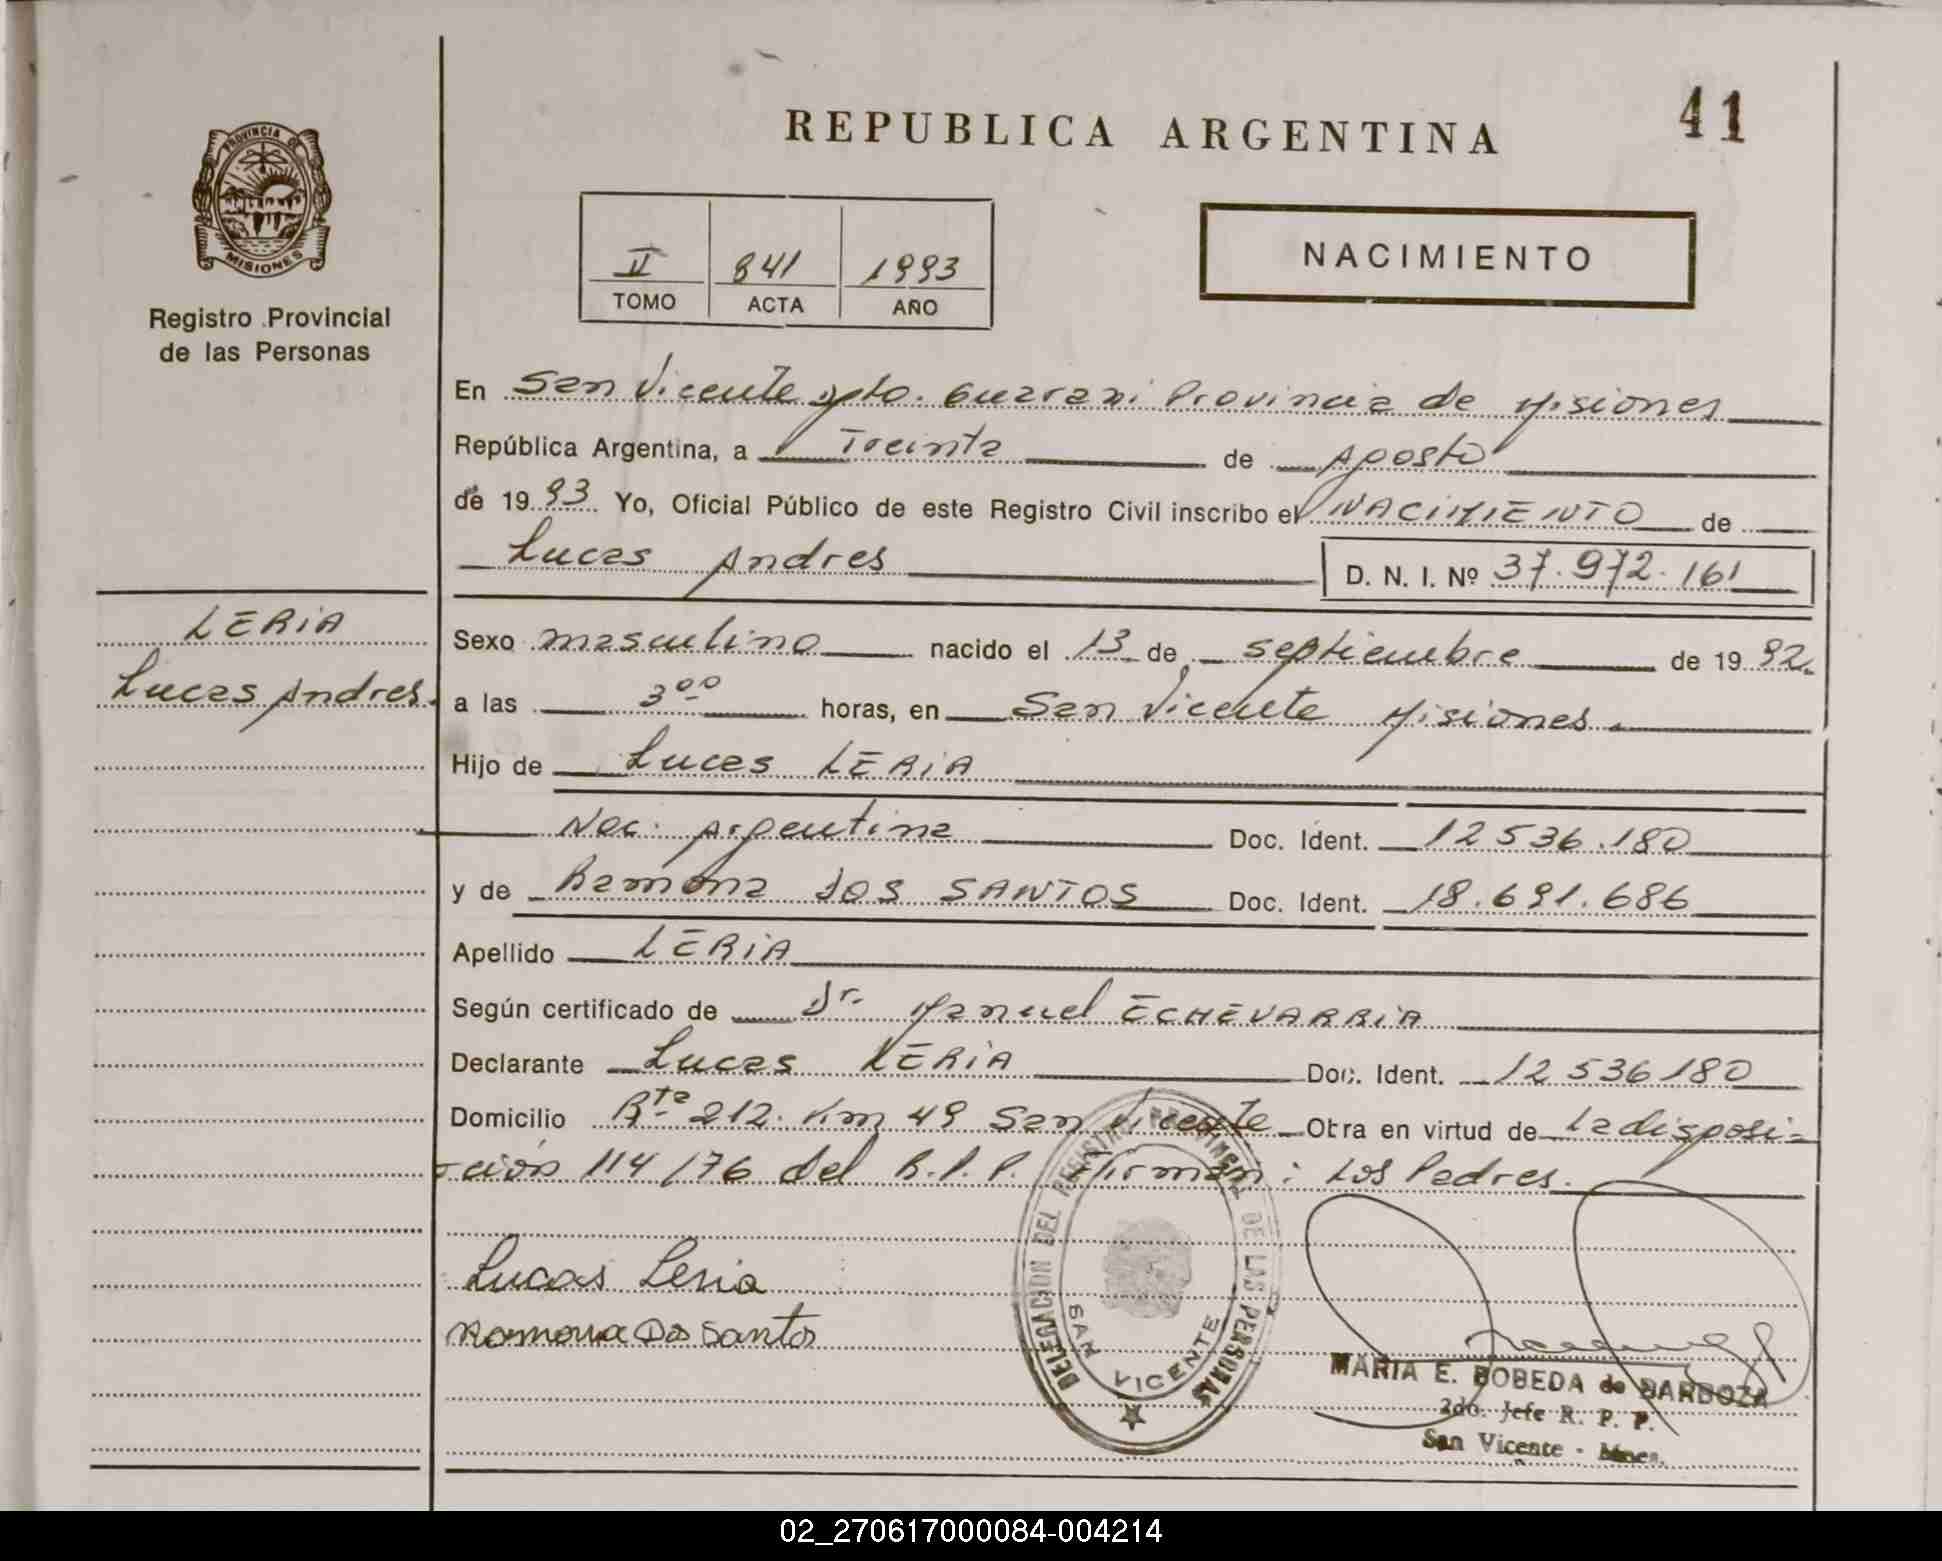 REPUBLICA ARGENTINA
41
PROVINCIA DE
MISIONES
Registro Provincial
de las Personas
II 841 1993
TOMO ACTA AÑO
NACIMIENTO
En San Vicente Dpto. Guarani Provincia de Misiones
República Argentina, a Treinta de Agosto
de 1993 Yo, Oficial Público de este Registro Civil inscribo el NACIMIENTO de
Lucas Andres D. N. I. Nº 37.972.161
LERIA
Lucas Andres
Sexo masculino nacido el 13 de septiembre de 1992
a las 3⁰⁰ horas, en San Vicente Misiones.
Hijo de Lucas LERIA
Nac. Argentina Doc. Ident. 12 536.180
y de Ramona DOS SANTOS Doc. Ident. 18.691.686
Apellido LERIA
Según certificado de Dr. Manuel ECHEVARRIA
Declarante Lucas LERIA Doc. Ident. 12 536 180
Domicilio Rta 212. Km 49 San Vicente Obra en virtud de La disposi-
ción 114/76 del R.P.P. Firman: Los Padres.
Lucas Leria
Ramona Dos Santos
DELEGACION DEL REGISTRO PROVINCIAL DE LAS PERSONAS
SAN VICENTE
MARIA E. BOBEDA de BARBOZA
2do. Jefe R. P. P.
San Vicente - Mnes.
02_270617000084-004214